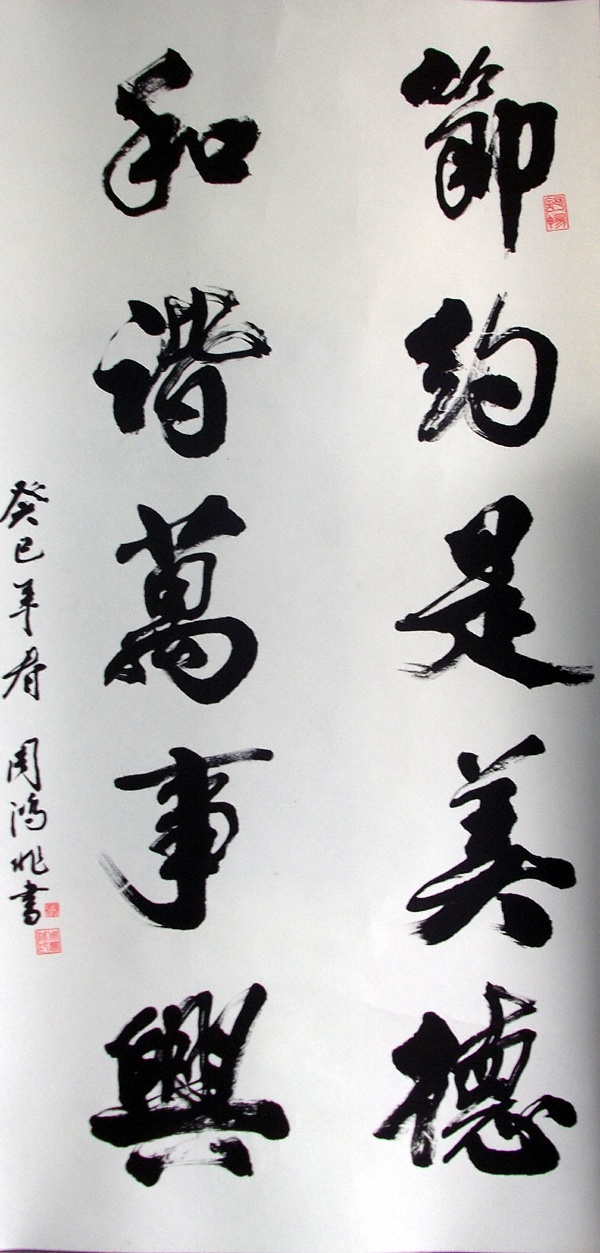 節約是美德
和谐萬事興
癸巳年春 周鴻兆書